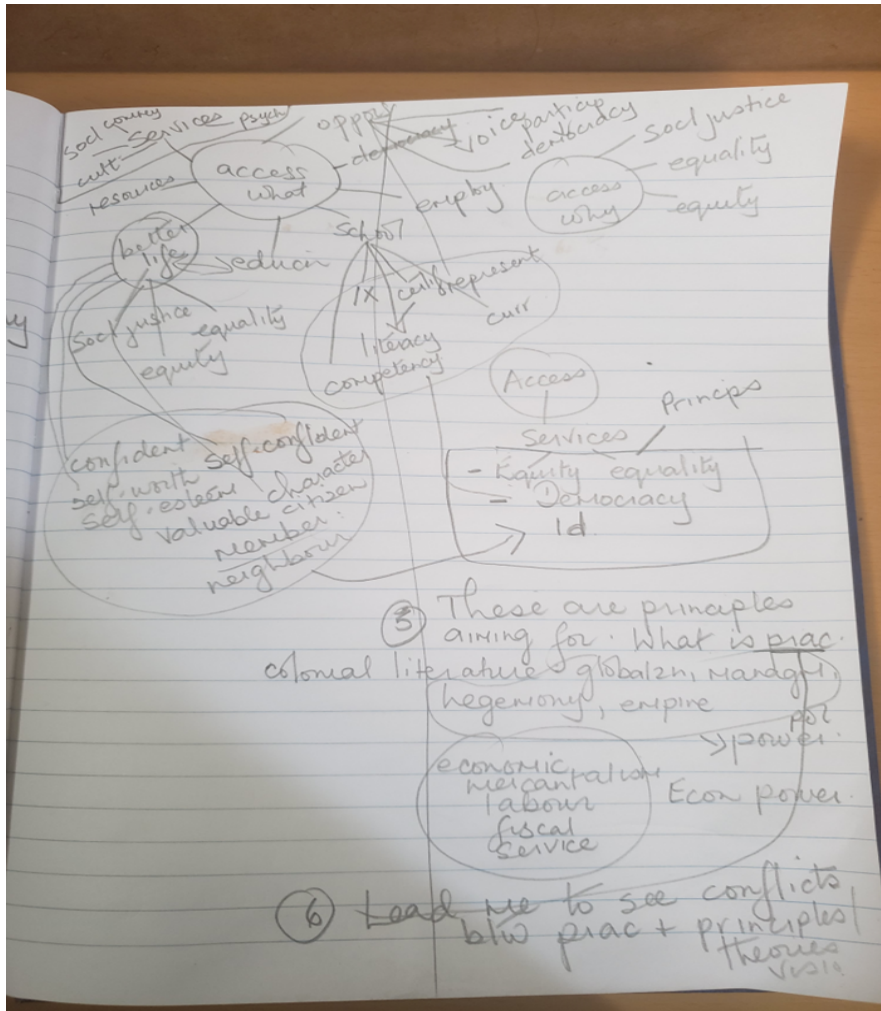 Socl country
Services psych
cult
resources
access
what
oppor
democracy
voice particip
democracy
employ
school
educn
better
life
Socl justice
equality
equity
access
why
Socl justice
equality
equity
represent
curr
literacy
competency
confident
self-confident
self-worth
self-esteem character
valuable citizen
member
neighbour
Access
Services
Princips
- Equity equality
- Democracy
Id
5 These are principles
aiming for. What is prac.
colonial literature globalzn,
hegemony, empire
pol
power
economic
mercantalism
labour
fiscal
service
Econ power.
6 Lead me to see conflicts
b/w prac + principles/
theories